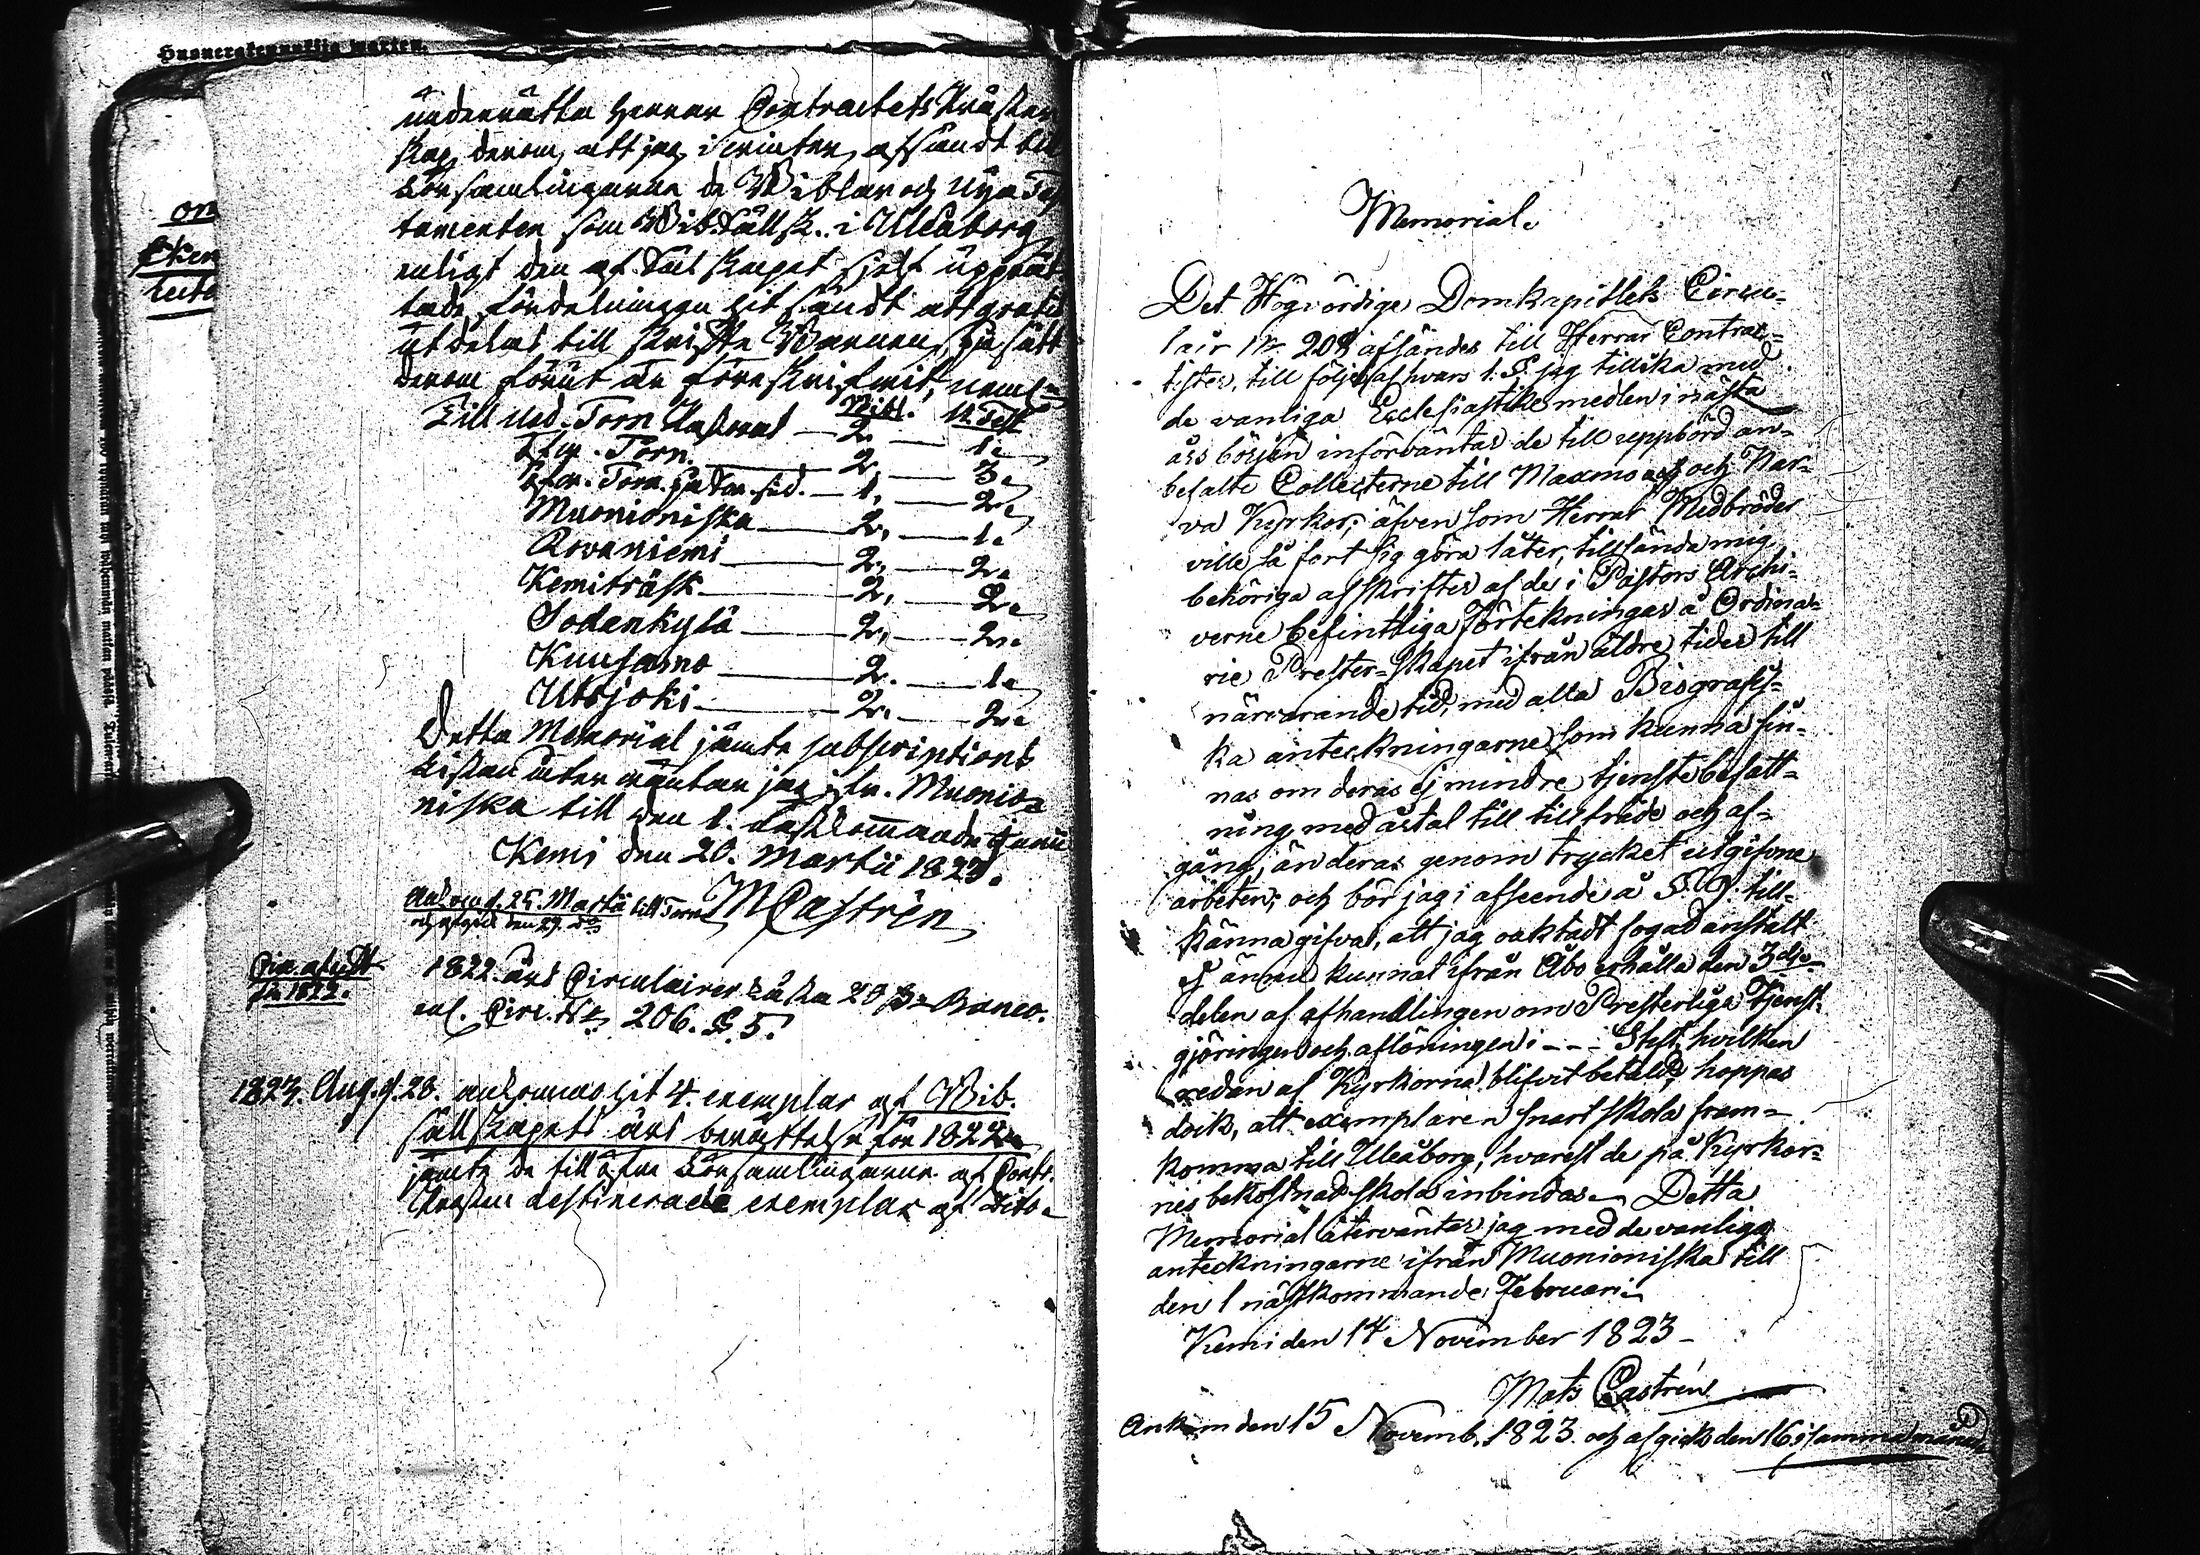 underrätta Herrar Contractets Prester-
skap derom, att jag i vinter, afsändt till
Församlingarne de Biblar och Nya Tes-
tamenter som Bib. Sällsk. i Uleåborg
enligt den af Sälskapet sjelf upprät-
tade fördelningen hit sändt att gratis
utdelas till
derom förut är föreskrifwit, neml.
Bibl. N. Test
Till Ned. Torn 2. 1.
Öfv. Torn. 2. 3.
Öfver. Torn. på denna sid. 1. 2.
Muonioniska 2. 1.
Rovaniemi 2. 2.
Kemiträsk 2. 2.
Sodankylä 2. 2.
Kuusamo 2. 1.
Utsjoki 2. 2.
Detta Memorial jämte subscriptions
listan återväntar jag ifr. Muonio-
niska till den 1. nästkommande Junii
Kemi den 20. Martii 1823.
MCastrén
Ankom d. 25. Martii
och afgick den 29. do
Cir. afsedt
för 1822.
1822. års Circulairer 20 Banco.
enl. Circ. No 206. §. 5.
1823. Aug. d. 28. ankommo hit 4. exemplar af Bib.
sällskapets års berättelse för 1822
jämte de till öfre Församlingarne af Contr.
Prosten destinerade exemplar af dito.
Memorial.
Det Högvördige Domkapitlets Circu-
lair No 208 afsändes till Herrar Contrac-
tister, till följe af hvars 1. §. jag tillika med
de vanliga Ecclesiastike medlen i nästa
års början införväntar de till uppbörd an-
befalte Collecterne till Maxmo och Nar-
va Kyrkor; äfven som Herrar Medbröder
ville så fort sig göra låter, tillsända mig
behöriga afskrifter af de i Pastors Archi-
verne befintliga förtekningar å Ordina-
rie Prester-skapet ifrån äldre tider till
närvarande tid, med alla Biografis-
ka anteckningarne som kunna fin-
nas om deras ej mindre tjenstebefatt-
ning med årtal till tillträde och af-
gång, än deras genom trycket utgifvne
arbeten; och bör jag i afseende å §. 9. till-
känna gifva, att jag oaktadt fogad anstalt
ej ännu kunnat ifrån Åbo erhålla den 3dje
delen af afhandlingen om Presterliga Tjenst-
gjöringen och aflöningen i --- Stift, hvilken
redan af Kyrkorna blifvit betald, hoppas
dock, att exemplaren snart skola fram-
komma till Uleåborg, hvarest de på Kyrkor-
nes bekostnad skola inbindas. Detta
Memorial återväntar jag med de vanliga
anteckningarne ifrån Muonioniska till
den 1 nästkommande Februari.
Kemi den 14 November 1823
Mats Castrén
Ankom den 15 Novemb. 1823. och afgick den 16 i samma månad